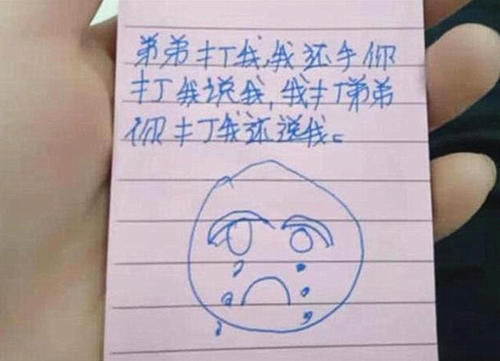 弟弟打我，我还手你
打我说我，我打弟弟
你打我还说我。